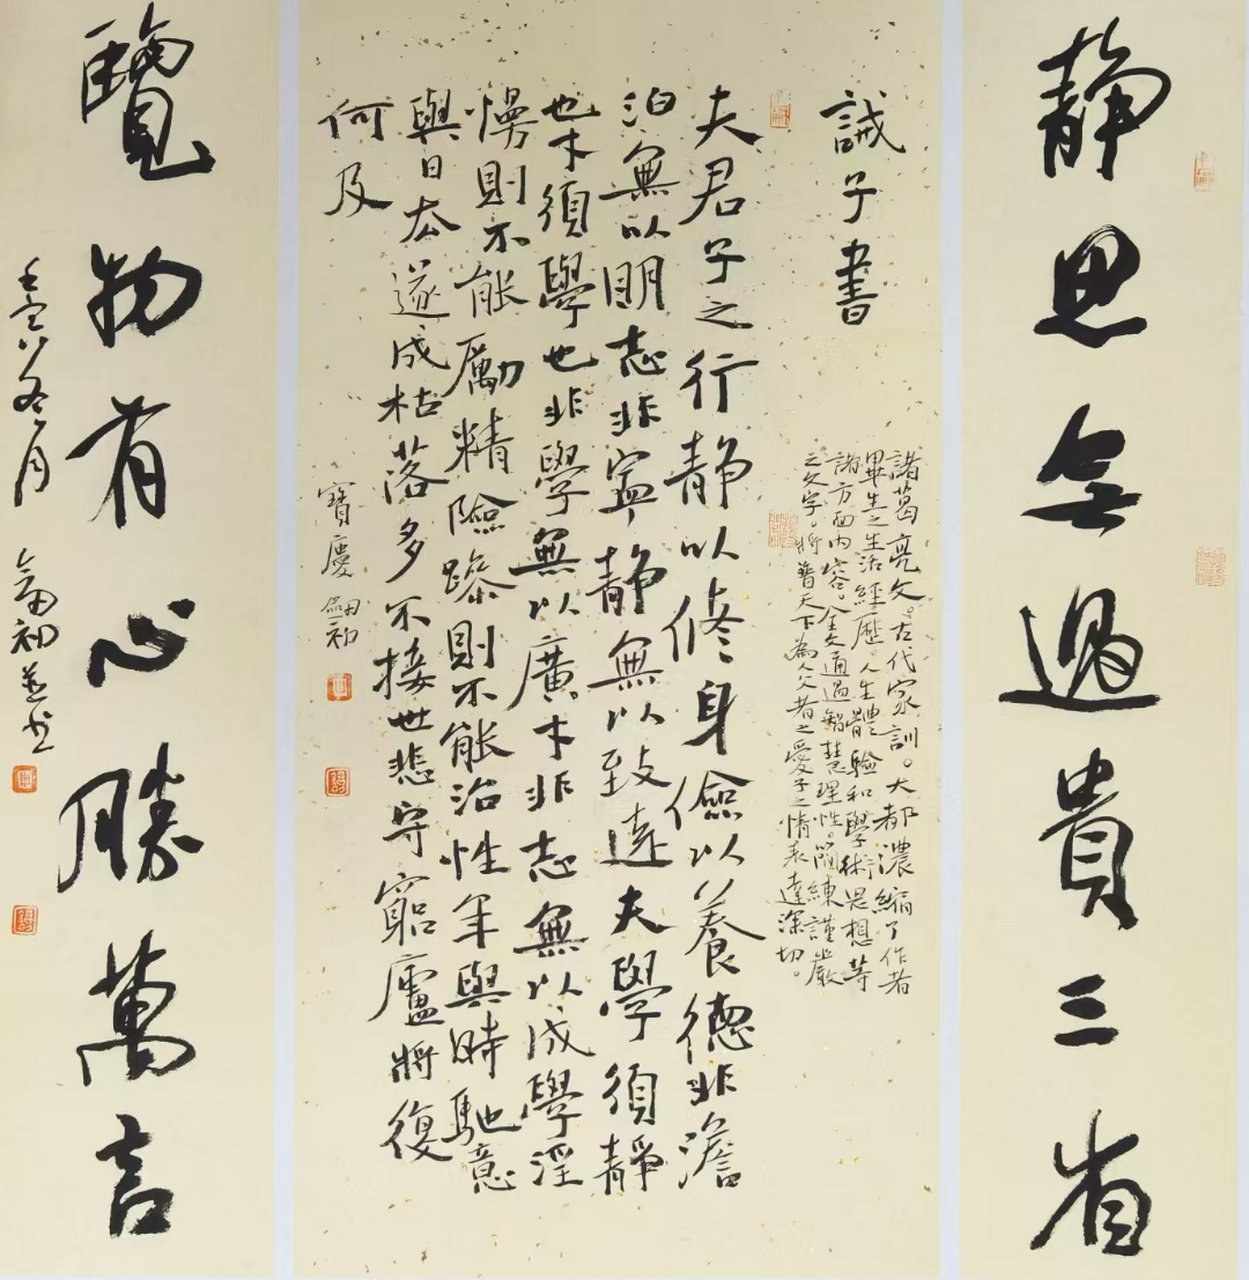 静思無過貴三省
誡子書
諸葛亮文。古代家訓。大都濃縮了作者
畢生之生活經歷。人生體驗和學術思想等
諸方面內容。全文通過智慧理性。簡練謹嚴
之文字。將普天下為人父者之愛子之情表達深切。
夫君子之行静以修身儉以養德非澹
泊無以明志非寧静無以致遠夫學須靜
也才須學也非學無以廣才非志無以成學淫
慢則不能勵精險躁則不能治性年與時馳意
與日去遂成枯落多不接世悲守窮廬將復
何及
寶慶 劍初
覽物有心勝萬言
壬寅冬月 劍初並書